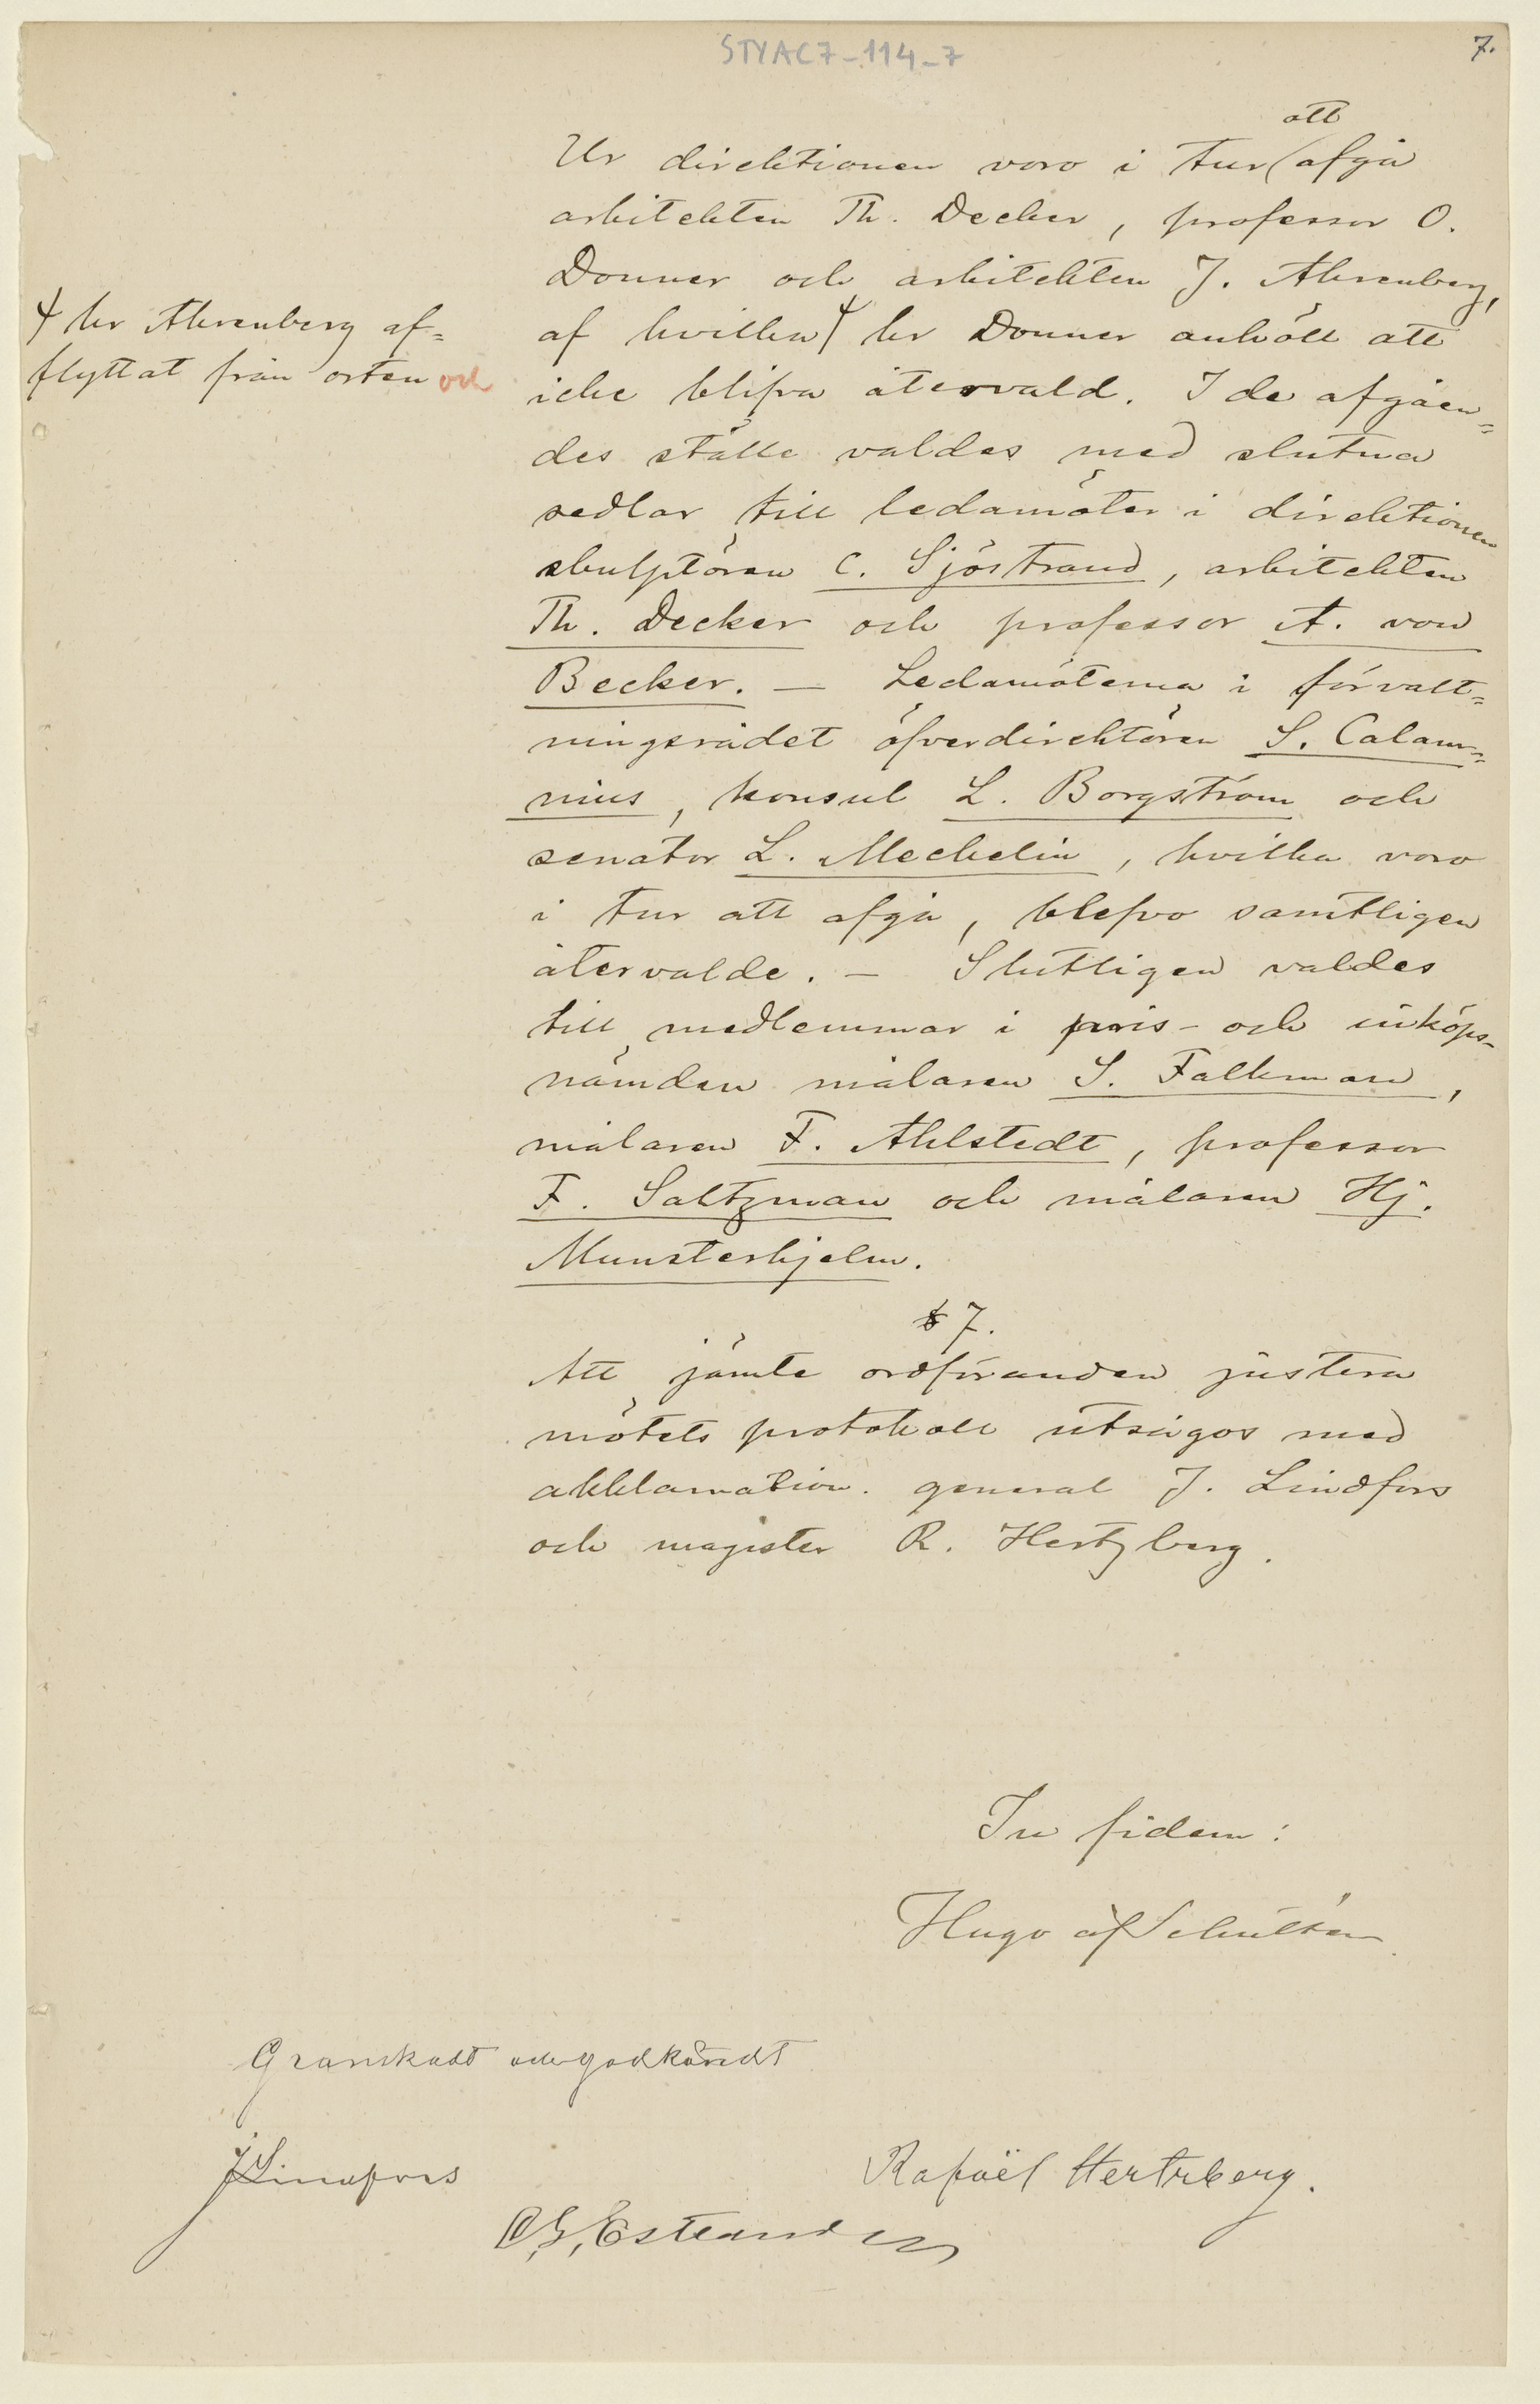 STYAC7-114-7
7.
att
Ur direktionen voro i tur ( afgå
arkitekten Th. Decker, professor O.
Donner och arkitekten J. Ahrenberg,
⌿ hr Ahrenberg af=
flyttat från orten och
af hvilka ⌿ hr Donner anhöll att
icke blifva återvald. I de afgåen=
des ställe valdes med slutna
sedlar till ledamöter i direktionen
skulptören C. Sjöstrand, arkitekten
Th. Decker och professor A. von
Becker. — Ledamöterna i förvalt=
ningsrådet öfverdirektören S. Calam=
nius, konsul L. Borgström och
senator L. Mechelin, hvilka voro
i tur att afgå, blefvo samtligen
återvalde. — Slutligen valdes
till medlemmar i pris- och inköps-
nämden målaren S. Falkman,
målaren F. Ahlstedt, professor
F. Saltzman och målaren Hj.
Munsterhjelm.
§ 7.
Att jämte ordföranden justera
mötets protokoll utsågos med
akklamation general J. Lindfors
och magister R. Hertzberg.
In fidem:
Hugo af Schultén
Granskadt och godkändt
J Lindfors
Rafaël Hertzberg.
C,G,Estlander